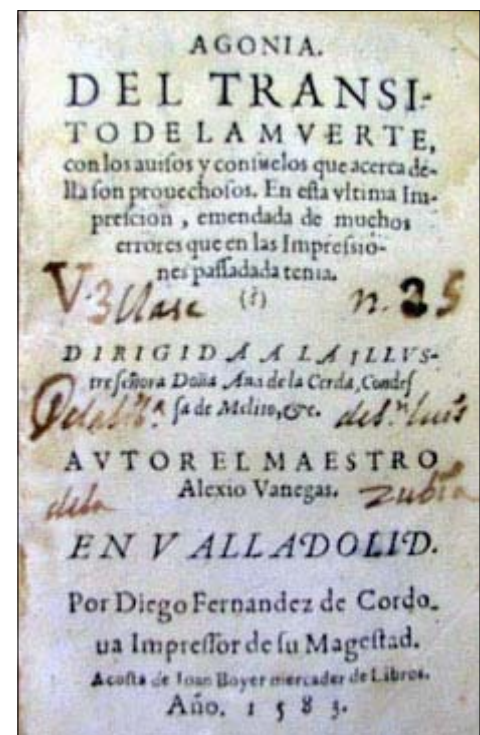 AGONIA.
DEL TRANSI-
TO DE LA MVERTE,
con los auisos y consuelos que acerca de-
lla son prouechosos. En esta vltima Im-
prescion, emendada de muchos
errores que en las Impressio-
nes passadada tenia.
V.3 Clase (?) n. 25
DIRIGIDA A LA ILLVS-
tre señora Doña Ana de la Cerda, Condes
sa de Melito, &c.
AVTOR EL MAESTRO
Alexio Vanegas.
dela Zubia
EN VALLADOLID.
Por Diego Fernandez de Cordo-
ua Impressor de su Magestad.
Acosta de Ioan Boyer mercader de Libros.
Año. 1583.